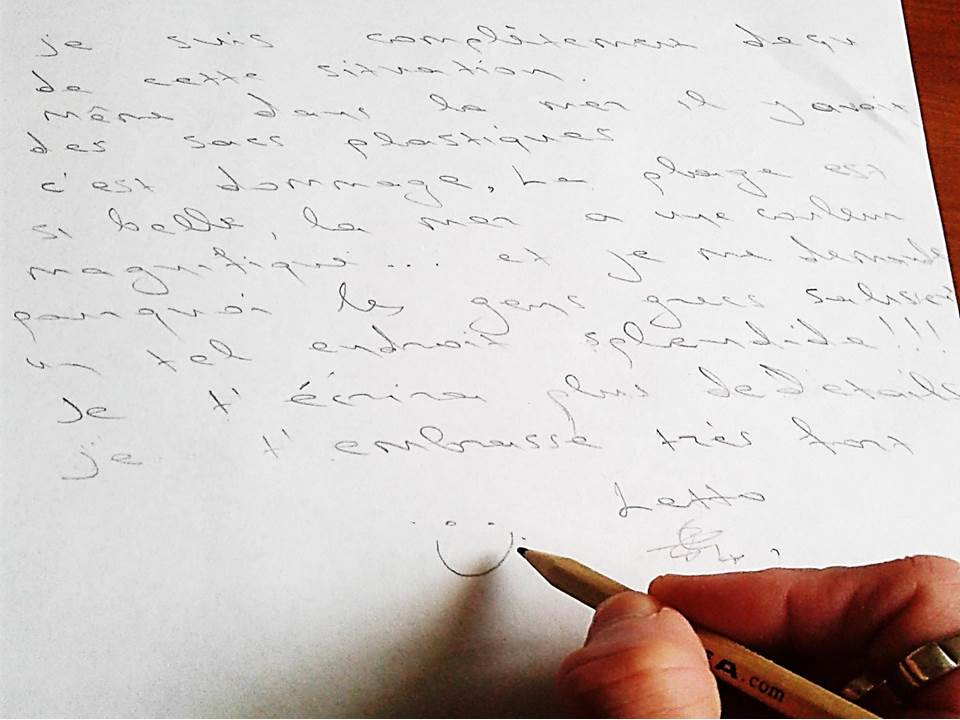 je suis complètement deçu
de cette situation.
même dans la mer il y avait
des sacs plastiques
c'est dommage, La plage est
si belle, la mer a une couleur
magnifique... et je me demande
pourquoi les gens grecs salissent
un tel endroit splendide!!!
Je t'écrirai plus de Details
je t'embrasse très fort
Letto
A.com